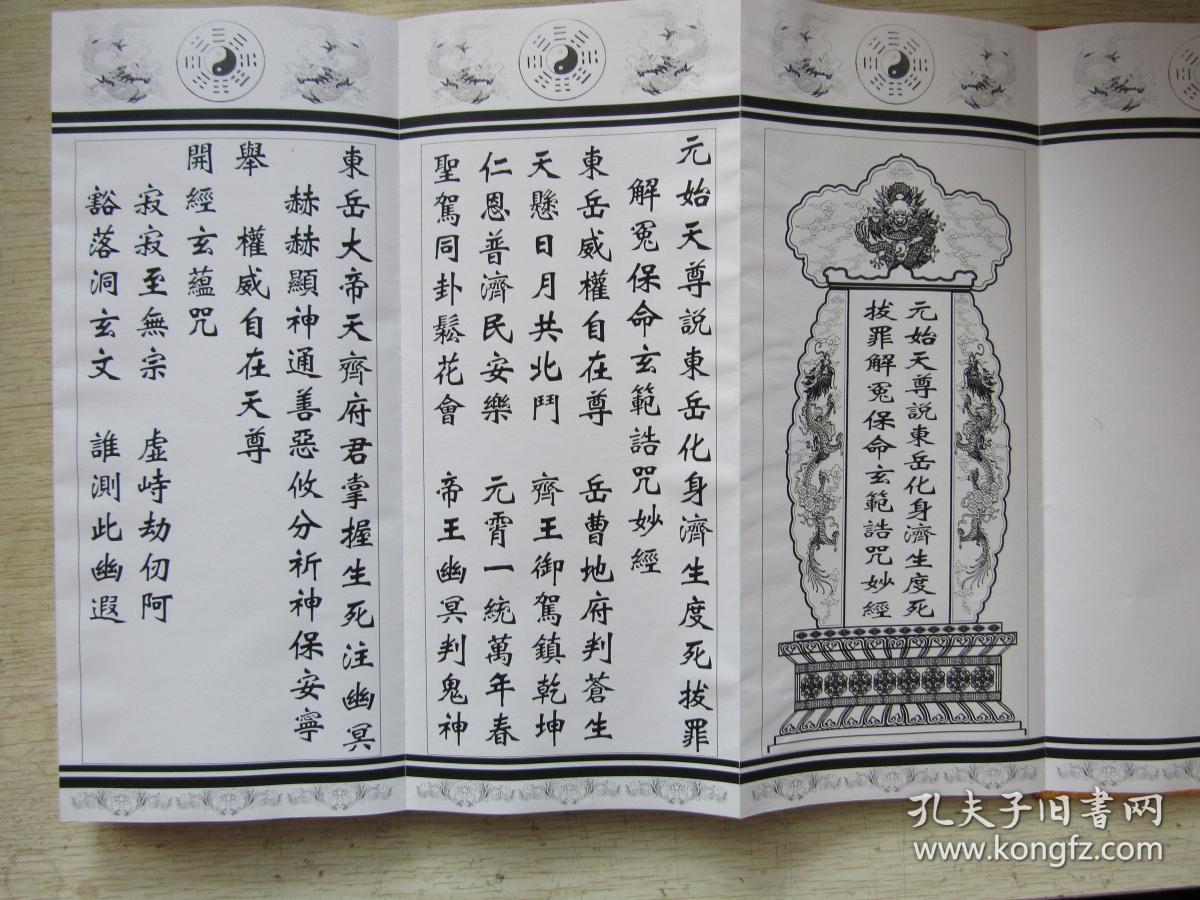 元始天尊説東岳化身濟生度死
拔罪解冤保命玄範誥咒妙經
元始天尊説東岳化身濟生度死拔罪
解冤保命玄範誥咒妙經
東岳威權自在尊 岳曹地府判蒼生
天懸日月共北鬥 齊王御駕鎮乾坤
仁恩普濟民安樂 元霄一統萬年春
聖駕同卦鬆花會 帝王幽冥判鬼神
東岳大帝天齊府君掌握生死注幽冥
赫赫顯神通善惡攸分祈神保安寧
舉 權威自在天尊
開經玄蘊咒
寂寂至無宗 虛峙劫仞阿
豁落洞玄文 誰測此幽遐
孔夫子旧书网
www.kongfz.com